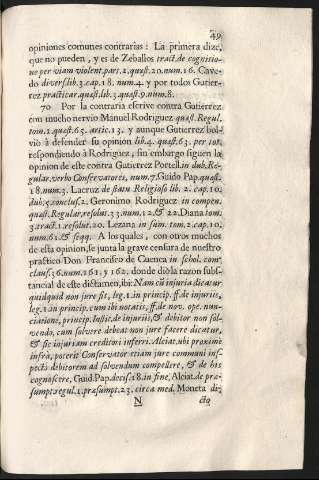 49
opiniones comunes contrarias: La primera dize,
que no pueden, y es de Zeballos tract. de cognitio-
ne per viam violent. part. 2. quæst. 20. num. 16. Cave-
do divers. lib. 3. cap. 18. num. 4. y por todos Gutier-
rez practicar. quæst. lib. 3. quæst. 9. num. 8.
70 Por la contraria escrive contra Gutierrez
con mucho nervio Manuel Rodriguez quæst. Regul.
tom. 2. quæst. 65. artic. 13. y aunque Gutierrez bol-
viò à defender su opinion lib. 4. quæst. 63. per tot.
respondiendo à Rodriguez, sin embargo siguen la
opinion de este contra Gutierrez Portell. in dub. Re-
gular. verbo Conservatores, num. 7. Guido Pap. quæst.
18. num. 3. Lacruz de statu Religioso lib. 2. cap. 10.
dub. 5. conclus. 2. Geronimo Rodriguez in compen.
quæst. Regular. resolut. 33. num. 12. & 22. Diana tom.
3. tract. 1. resolut. 20. Lezana in sum. tom. 2. cap. 10.
num. 61. & seqq. A los quales, con otros muchos
de esta opinion, se junta la grave censura de nuestro
practico Don Francisco de Cuenca in schol. com.
clauss. 36. num. 161. y 162. donde diò la razon subs-
tancial de este dictamen, ibi: Nam cũ injuria dicatur
quidquid non jure fit, leg. 1. in princip. ff. de injuriis,
leg. 1. in princip. cum ibi notatis, ff. de nov. ope. nun-
ciatione, princip. Instit. de injuriis, & debitor non sol-
vendo, cum solvere debeat non jure facere dicatur,
& sic injuriam creditori inferri. Alciat. ubi proximè
infrà, poterit Conservator etiam jure communi ins-
pecto debitorem ad solvendum compellere, & de his
cognoscere, Guid. Pap. decis. 18. in fine, Alciat. de præ-
sumpt. regul. 1. præsumpt. 23. circa med. Moneta di-
N
cto